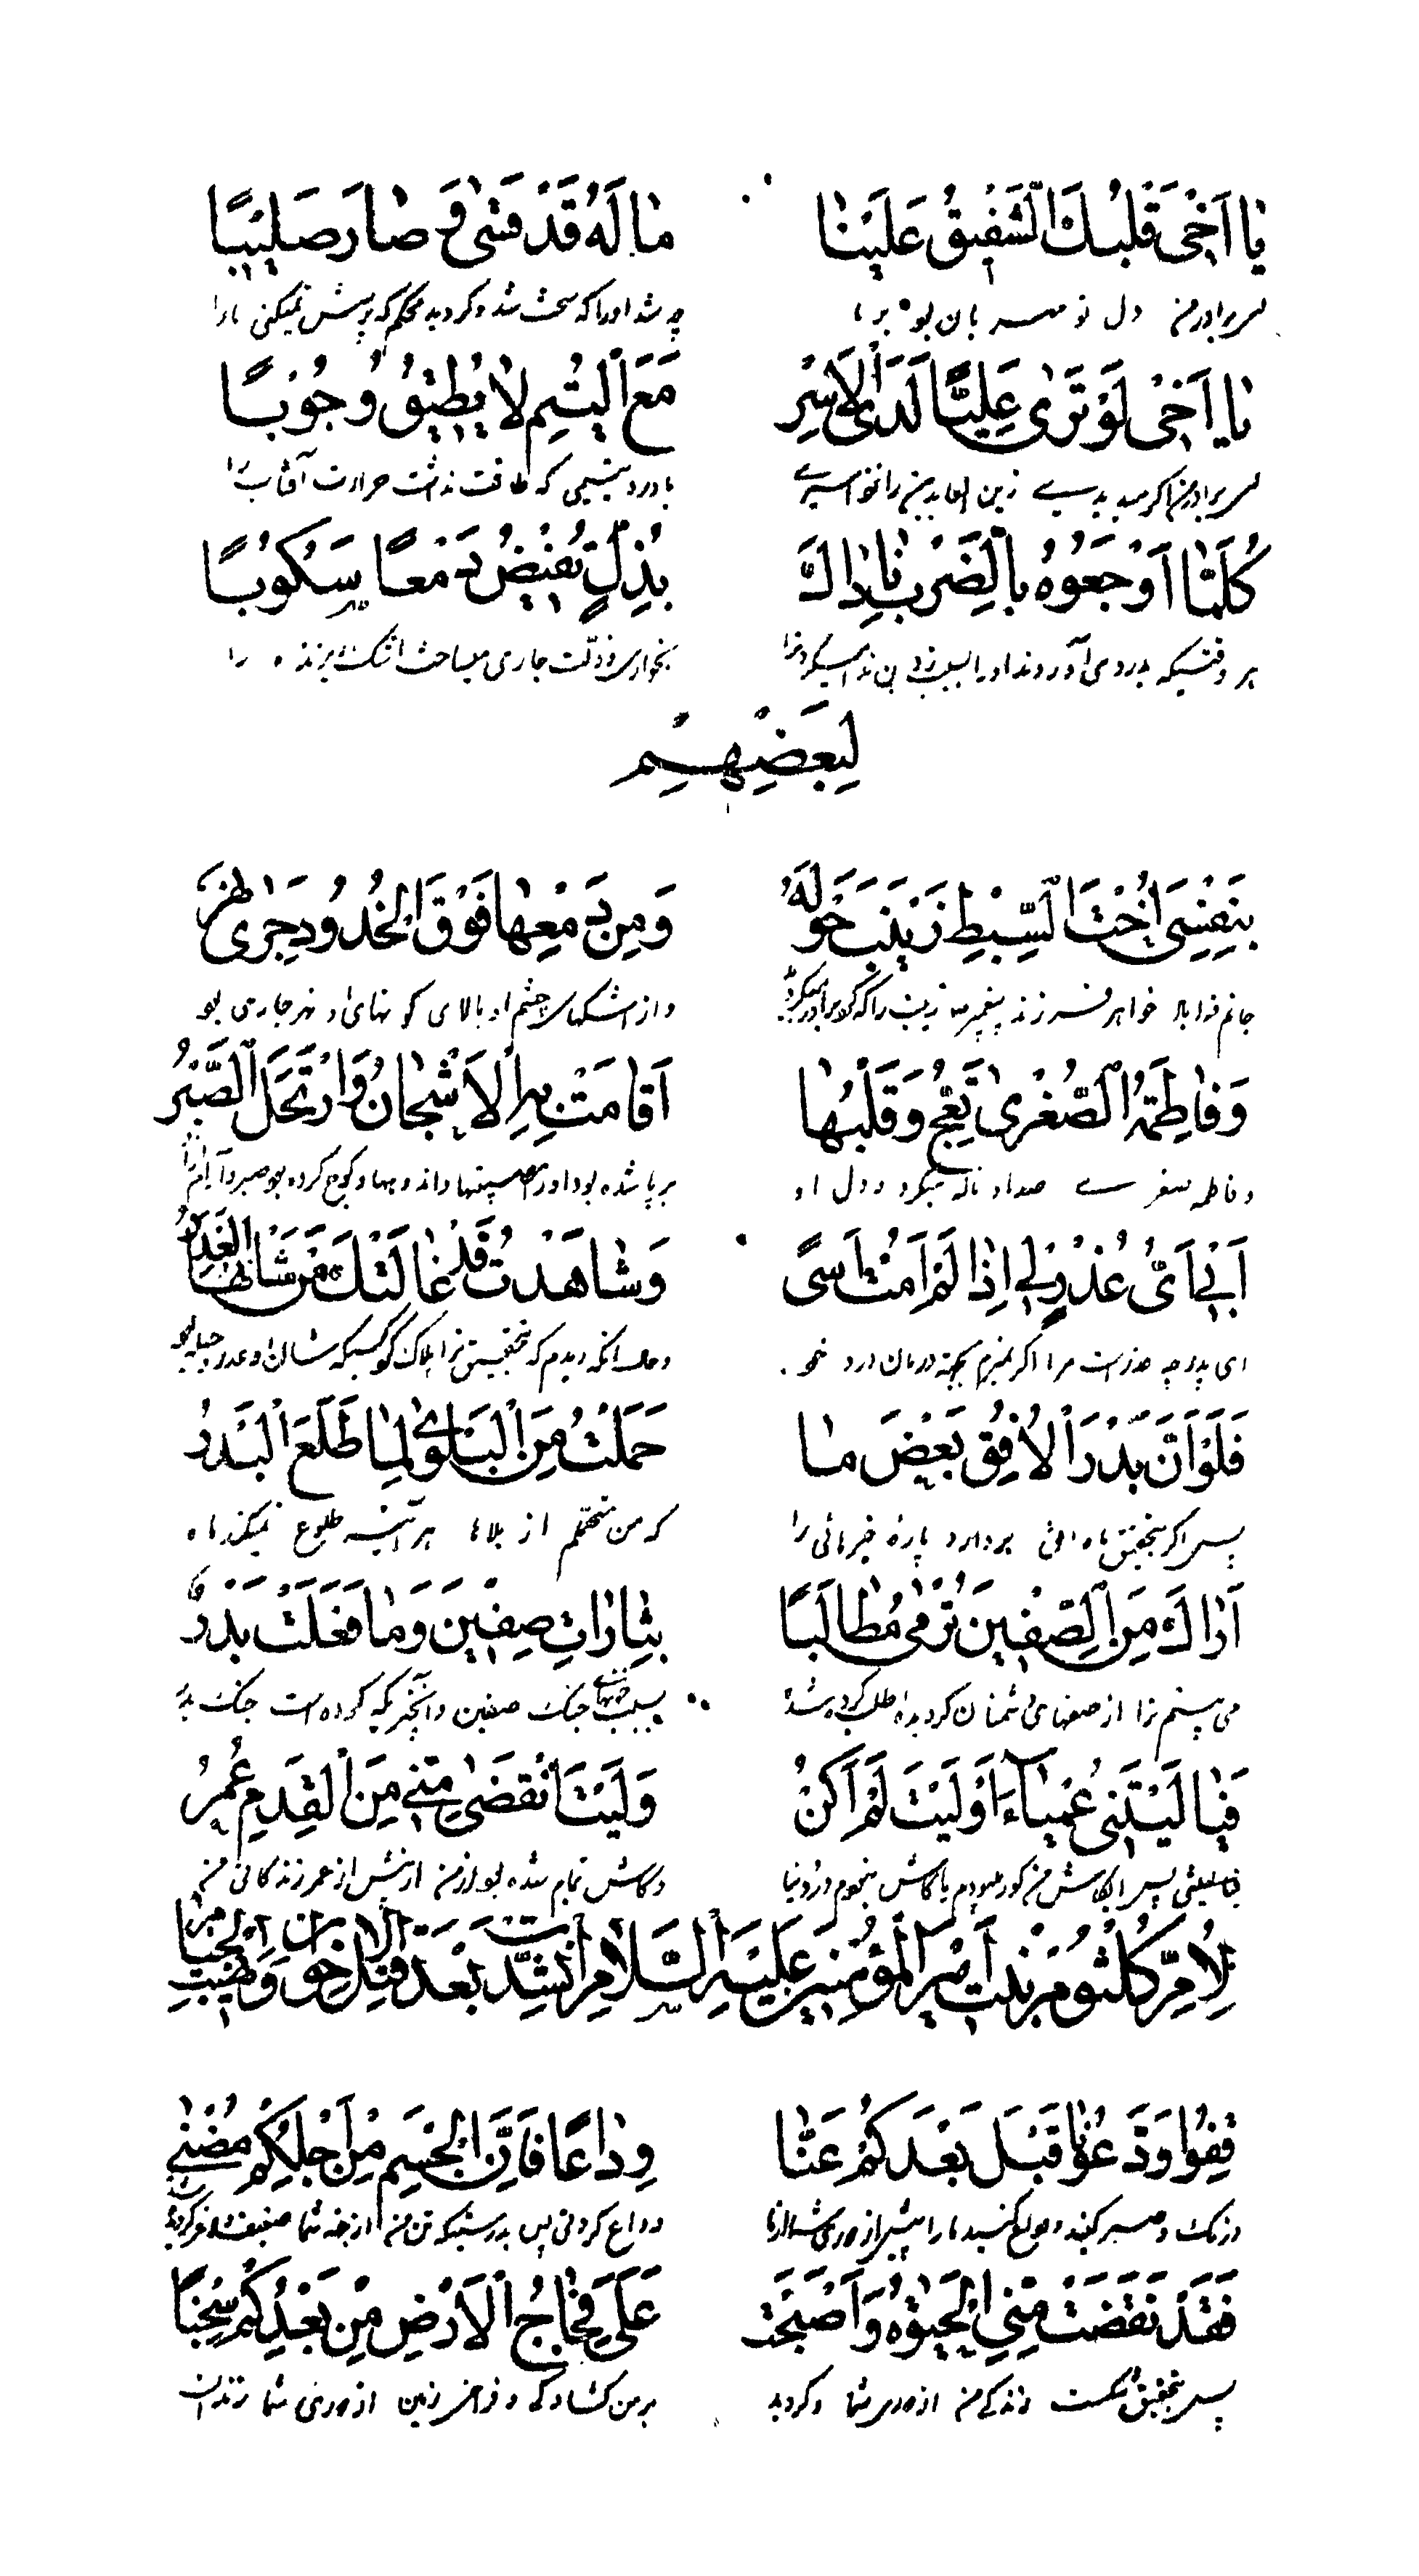 يا اَخي قَلبُكَ الشَّفيقُ عَلَيْنا ما لَهُ قَدْ قَسٰى وَ صارَ صَليبًا
ای برادر من دل تو مهربان بود بر ما چه شد او را که سخت شد و گردید محکم که پرسش نمیکنی ما را
يا اَخي لَوْ تَرٰى عَلِيًّا لَدَى الْاَسْرِ مَعَ الْيُتْمِ لا يُطيقُ وُجُوبًا
ای برادر من اگر میدیدی زین العابدین را نزد اسیری با درد یتیمی که طاقت نداشت حرارت آفتاب را
كُلَّمٰا اَوْجَعُوهُ بِالضَّرْبِ نٰادٰاكَ بِذُلٍّ يُفيضُ دَمْعًا سَكُوبًا
هر وقتیکه بدرد می‌آوردند او را بسبب زدن ندا میکرد ترا بخواری و ذلت جاری میساخت اشک ریزنده را
لِبَعْضِهِمْ
بِنَفْسي اُخْتَ السِّبْطِ زَيْنَبَ حَوْلَهُ وَمِنْ دَمْعِها فَوْقَ الْخُدُودِ جَرٰى نَهْرٌ
جانم فدا باد خواهر فرزند پیغمبر زینب را که و از اشکهای چشم او بالای گونهای او نهر جاری بود
وَفاطِمَةُ الصُّغْرىٰ تَعُجُّ وَقَلْبُها اَقامَتْ بِهِ الْاَشْجانُ وَارْتَحَلَ الصَّبْرُ
و فاطمه صغری صدا و ناله میکرد و دل او برپا شده بود در او مصیبتها و اندوهها و کوچ کرده بود صبر و آرام
اَبي اَيُّ عُذْرٍ لي اِذا لَمْ اَمُتْ اَسًى وَشاهَدْتُ قَدْ غالَتْكَ مَنْ شَأْنُهَا الْغَدْرُ
ای پدر چه عذر است مرا اگر نمیرم بجهة درمان درد خود و حال آنکه دیدم که بتحقیق ترا هلاک کرد کسیکه شان او غدر و حیله بود
فَلَوْ اَنَّ بَدْرَ الْاُفْقِ بَعْضَ ما حَمَلْتُ مِنَ الْبَلْوىٰ لِما طَلَعَ الْبَدْرُ
پس اگر بتحقیق ماه افق بردارد پاره چیزهائی را که من متحمّلم از بلاها هر آینه طلوع نمیکند ماه
اَراكَ مِنَ الصِّفّينَ تُرْمىٰ مُطالَبًا بِثاراتِ صِفّينَ وَما فَعَلَتْ بَدْرٌ
می بینم ترا از صفهای دشمنان گردیده طلب کرده شده بسبب خونهای جنگ صفین و آنچیزیکه کرده است جنگ بدر
فَيا لَيْتَني عُمْيآءَ اَوْ لَيْتَ لَمْ اَكُنْ وَلَيْتَ انْقَضىٰ مِنّي مِنَ الْقِدَمِ عُمْرُ
پس ای کاش من کور میبودم یا کاش نبودم در دنیا و کاش تمام شده بود از من از پیش از عمر زندگانی من
لِاُمِّ كُلْثُومٍ بِنْتِ اَميرِ الْمُؤْمِنينَ عَلَيْهِ السَّلامُ اُنْشِدَتْ بَعْدَ قَتْلِ الْاِخْوانِ وَنَهْبِ الْخِيامِ
قِفُوا وَدِّعُونا قَبْلَ بُعْدِكُمْ عَنّا وِداعًا فَاِنَّ الْجِسْمَ مِنْ اَجْلِكُمْ مُضْنىٰ
درنگ و صبر کنید و وداع کنید ما را پیش از دوری شما از ما وداع کردنی پس بدرستیکه تن من از جهه شما ضعیف و لاغر گردید
فَقَدْ نَقَضَتْ مِنّي الْحَيوٰةُ وَاَصْبَحَتْ عَلَيَّ فِجاجُ الْاَرْضِ مِنْ بَعْدِكُمْ سِجْنًا
پس بتحقیق شکست زندگی من از دوری شما و گردید بر من گشادگی و فراخی زمین از دوری شما زندان